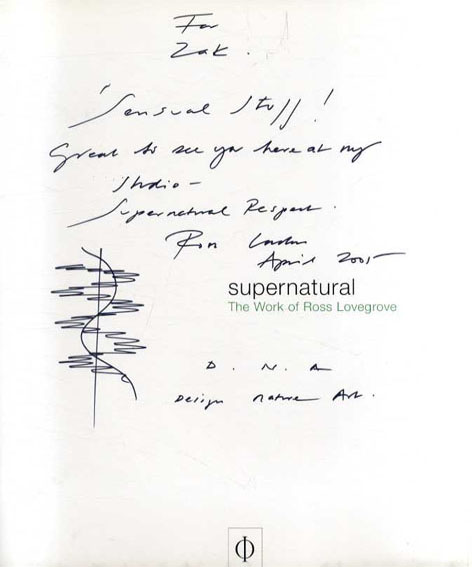 For
Zak.
'Sensual Stuff!
Great to see you here at my
Studio -
Supernatural Respect.
April 2005
supernatural
The Work of Ross Lovegrove
D. N. A
Design Nature Art.
Φ